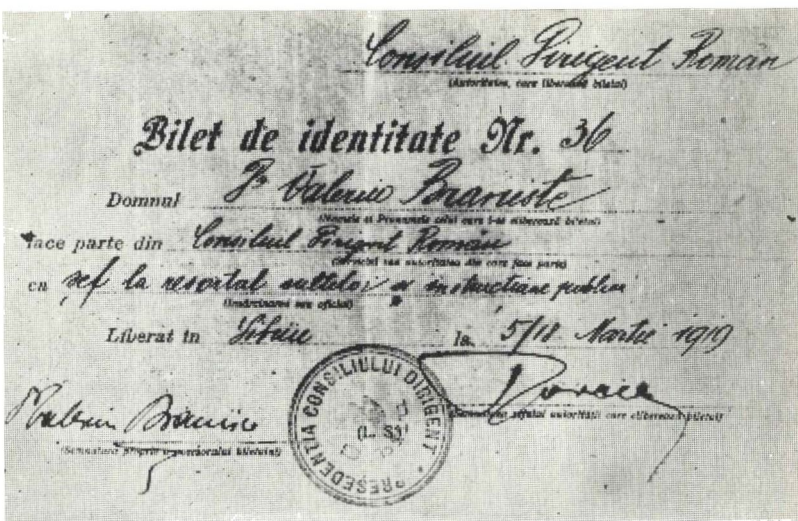 Consiliul Dirigent Român
(Autoritatea, care liberează biletul)
Bilet de identitate Nr. 36
Domnul Dr Valeriu Braniste
(Numele si Pronumele celui care i-se eliberează biletul)
face parte din Consiliul Dirigent Român
(Serviciul sau autoritatea din care face parte)
ca şef la resortul cultelor si instrucţiune publică
(Insărcinarea sau oficiul)
Liberat in Sibiiu la 5/18 Martie 1919
Valeriu Braniste
(Semnatura proprie a purtătorului biletului)
PREŞEDENTIA CONSILIULUI DIRIGENT
(L. S.)
(Semnatura şefului autorităţii care eliberează biletul)